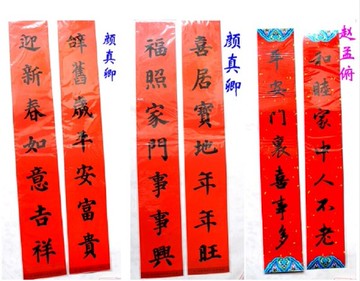 辤舊歲平安富貴
迎新春如意吉祥
颜真卿
喜居寶地年年旺
福照家門事事興
颜真卿
和睦家中人不老
平安門裏喜事多
赵孟俯